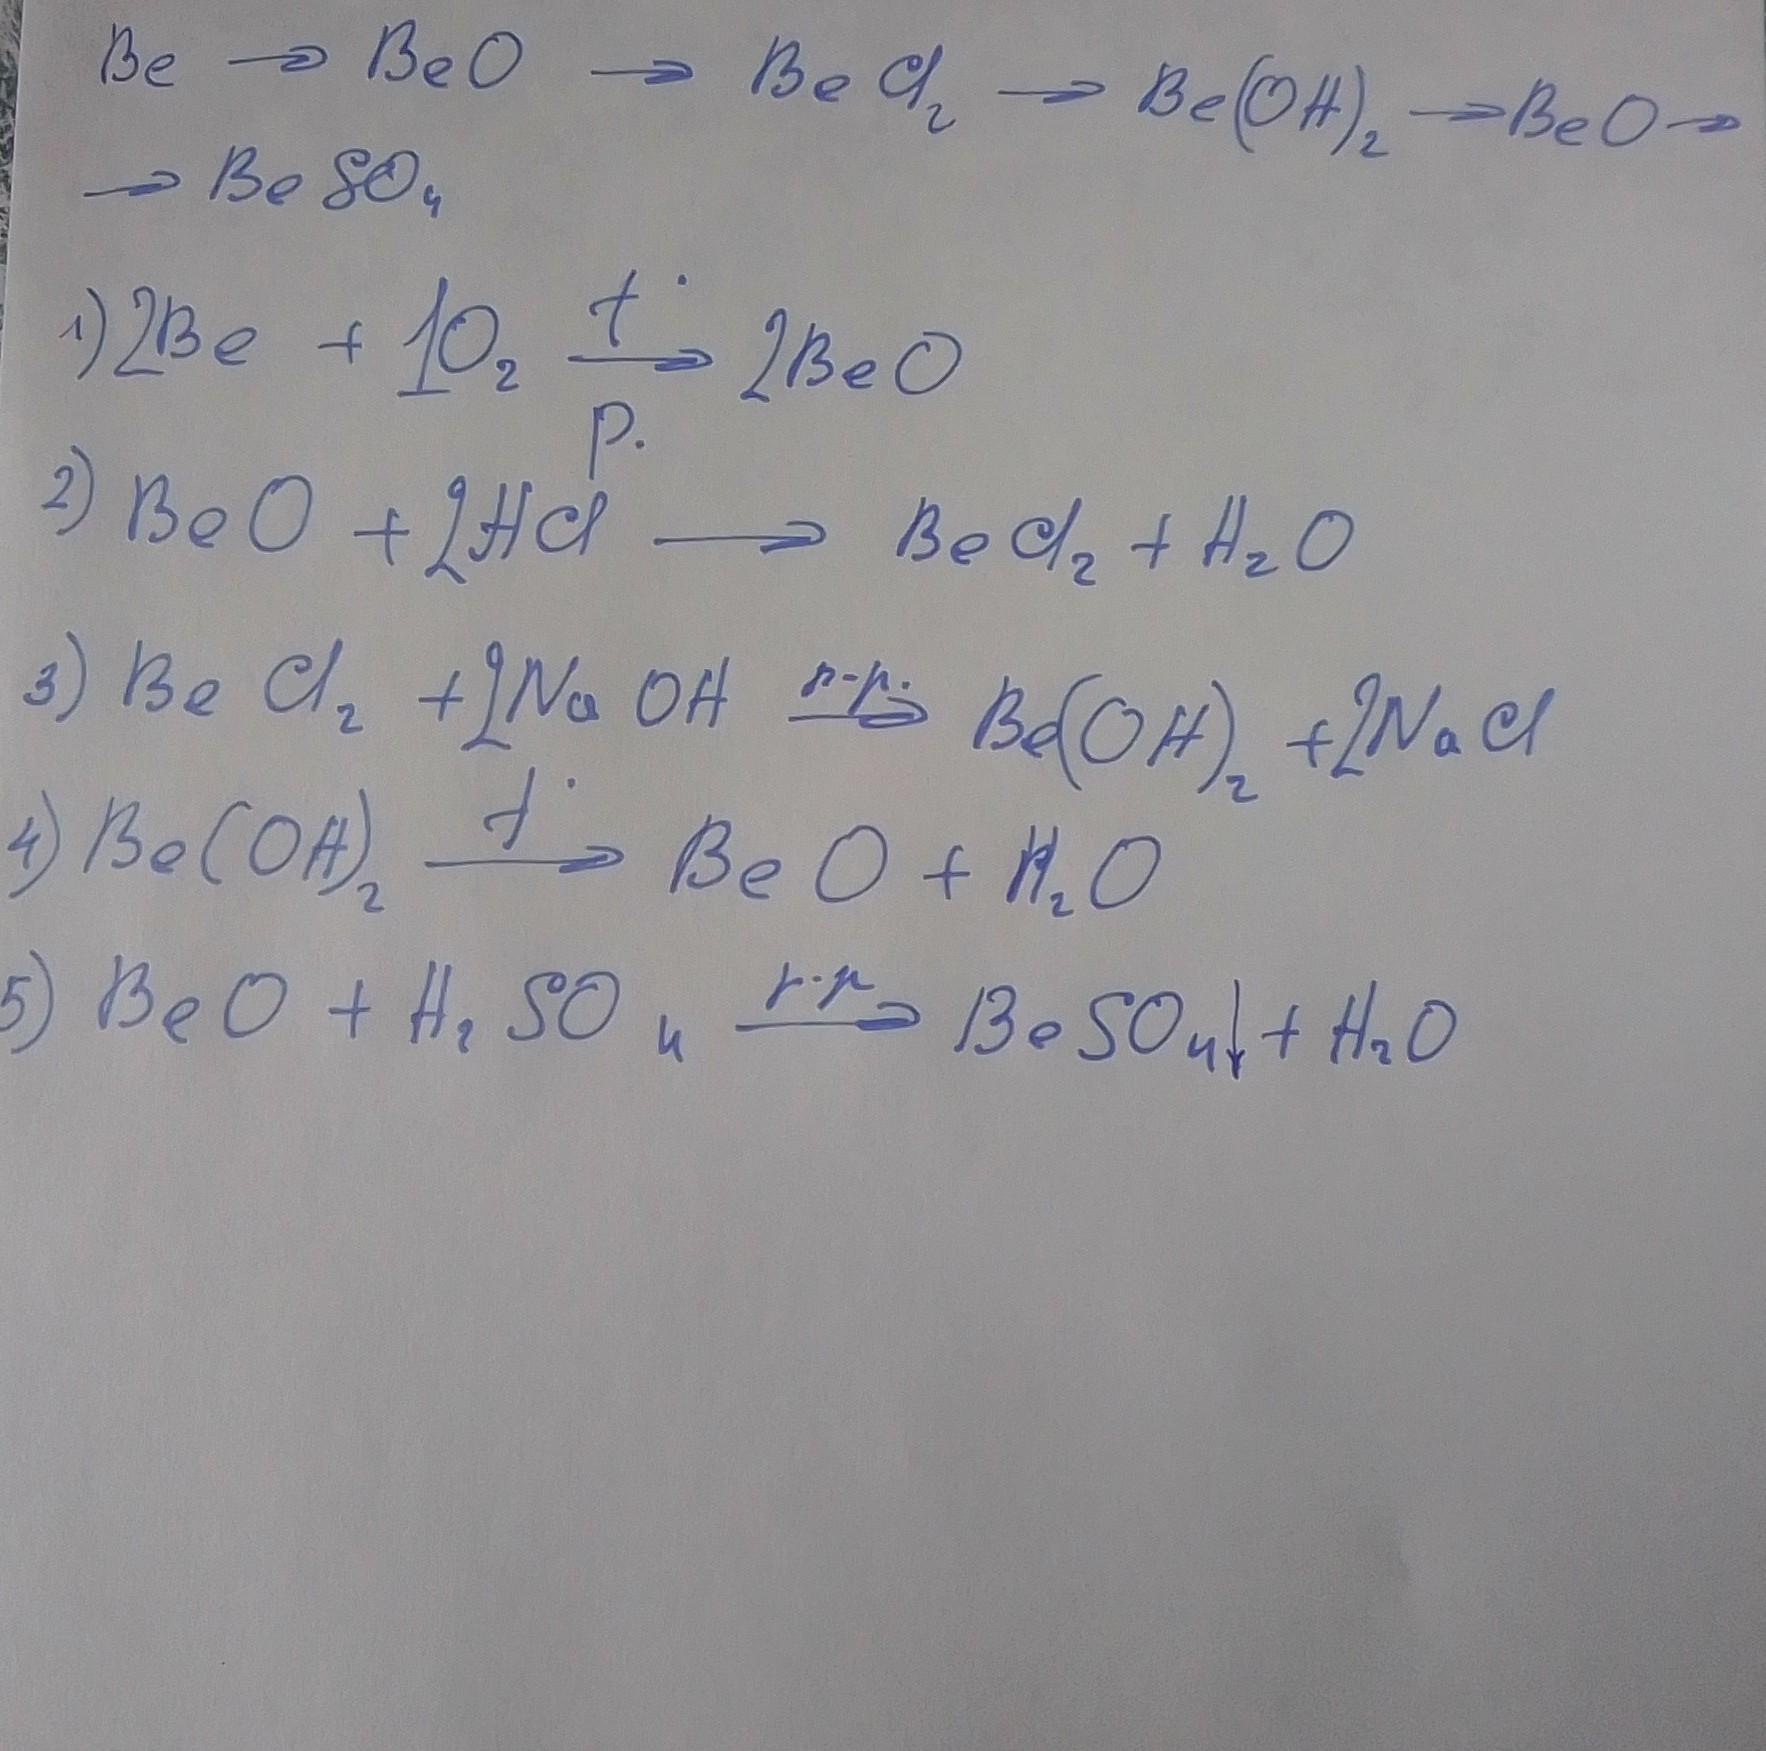 Be → BeO → BeCl₂ → Be(OH)₂ → BeO →
→ BeSO₄
t°
1) 2Be + 1O₂ → 2BeO
р.
2) BeO + 2HCl → BeCl₂ + H₂O
р-р.
3) BeCl₂ + 2NaOH → Be(OH)₂ + 2NaCl
t°
4) Be(OH)₂ → BeO + H₂O
р-р
5) BeO + H₂SO₄ → BeSO₄↓ + H₂O